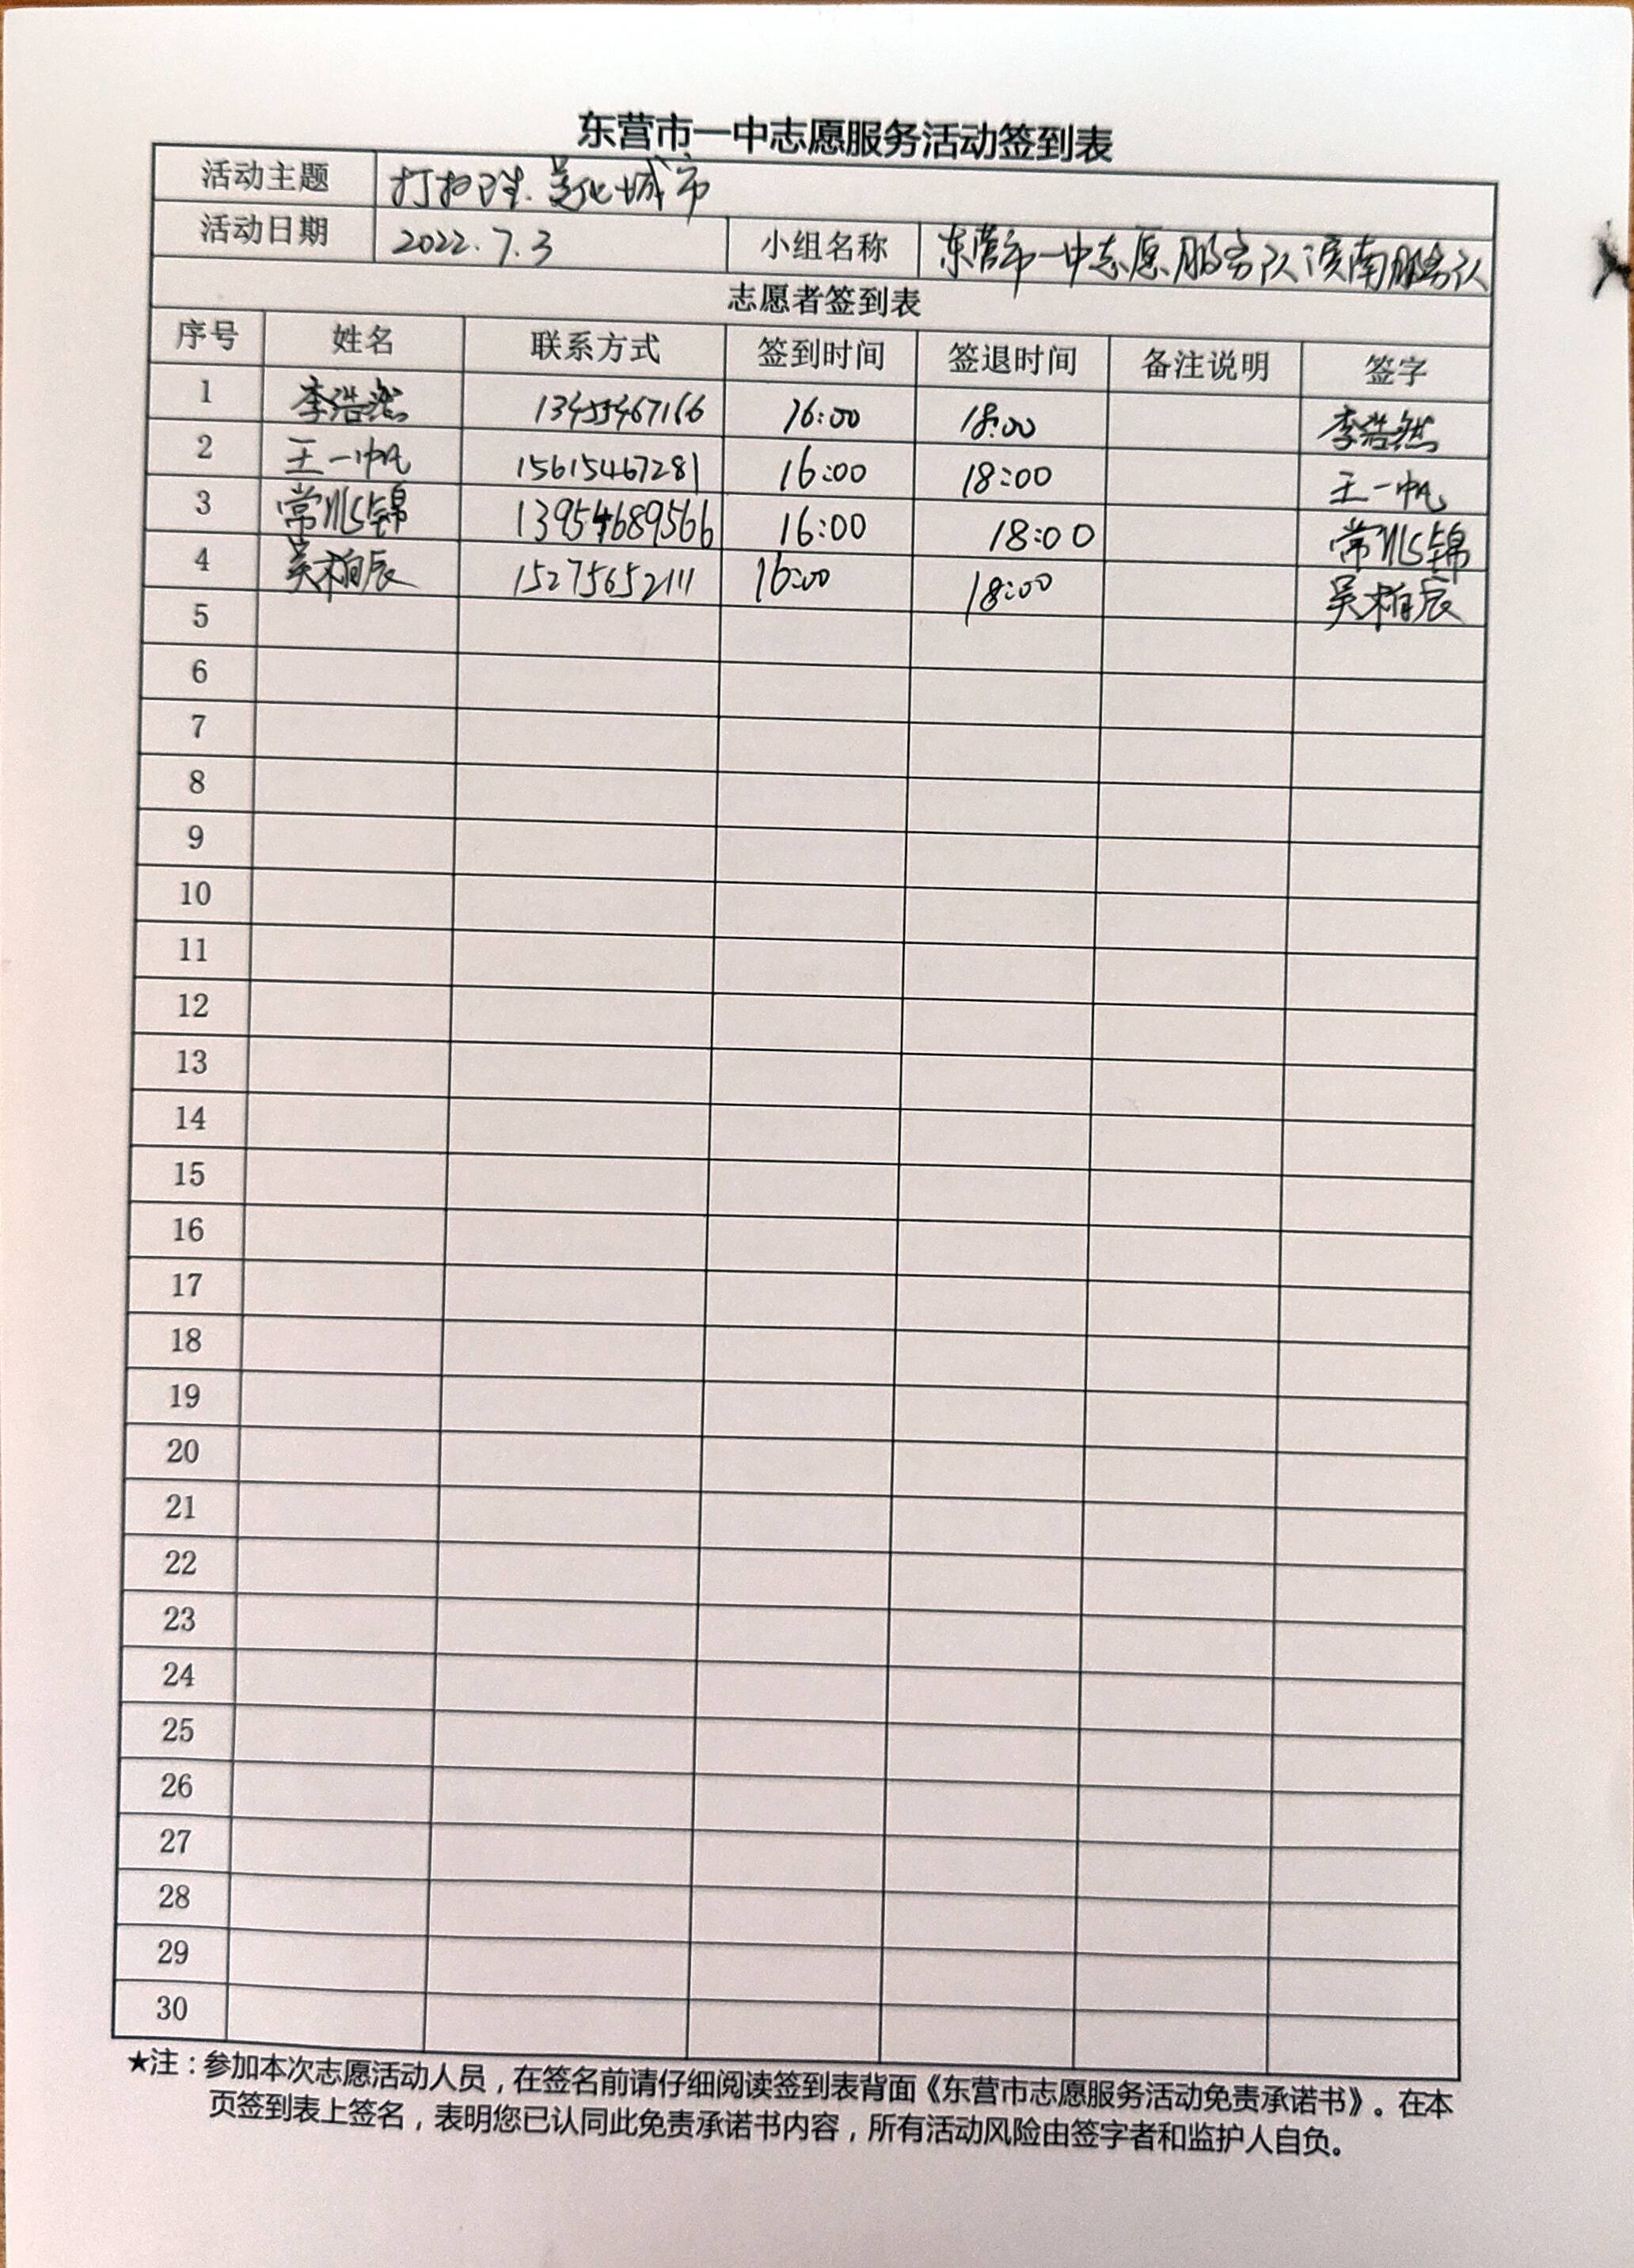 东营市一中志愿服务活动签到表
活动主题 打扫 美化城市
活动日期 2022.7.3 小组名称 东营市一中志愿服务队滨南服务队
志愿者签到表
序号 姓名 联系方式 签到时间 签退时间 备注说明 签字
1 李浩然 13455467166 16:00 18:00 李浩然
2 王一帆 15615467281 16:00 18:00 王一帆
3 常 锦 13954689566 16:00 18:00 常 锦
4 吴柏辰 15275652111 16:00 18:00 吴柏辰
5
6
7
8
9
10
11
12
13
14
15
16
17
18
19
20
21
22
23
24
25
26
27
28
29
30
★注：参加本次志愿活动人员，在签名前请仔细阅读签到表背面《东营市志愿服务活动免责承诺书》。在本
页签到表上签名，表明您已认同此免责承诺书内容，所有活动风险由签字者和监护人自负。